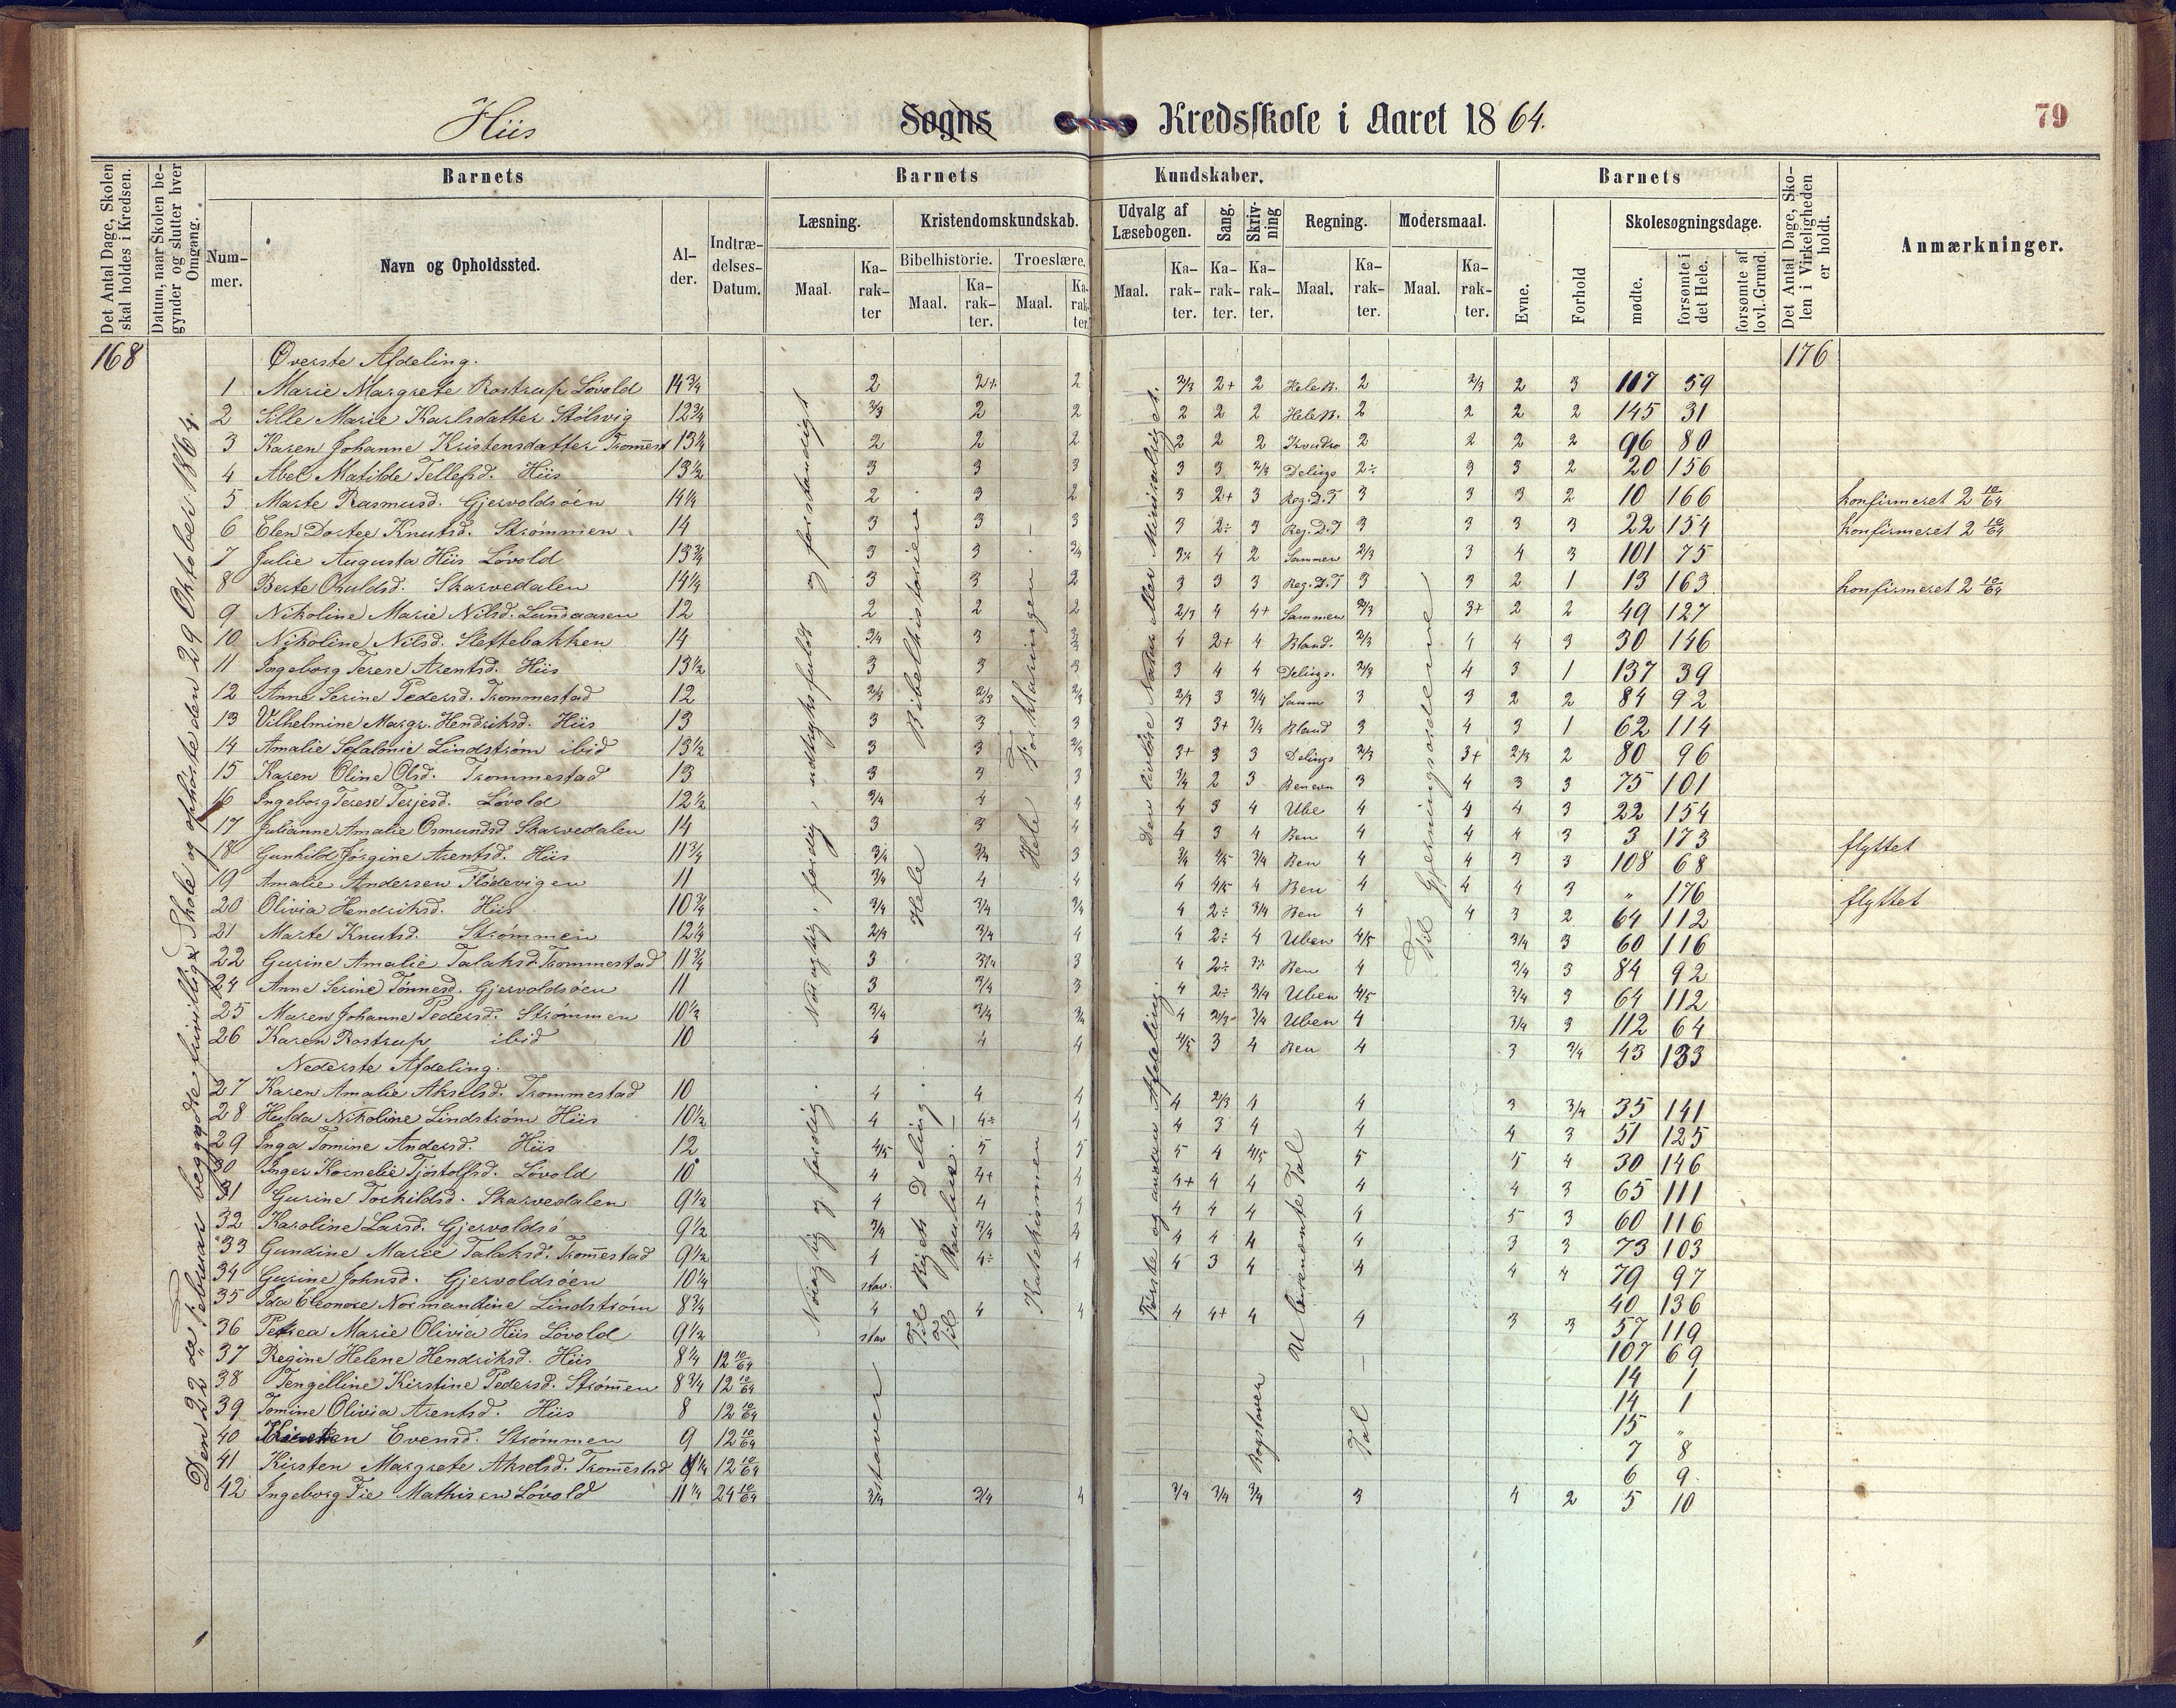 Hiis Sogns Kredsskole i Aaret 1864. 79
Det Antal Dage, Skolen skal holdes i Kredsen.
Datum, naar Skolen begynder og slutter hver Omgang.
Barnets
Nummer.
Navn og Opholdssted.
Alder.
Indtrædelses-Datum.
Barnets Kundskaber.
Læsning.
Maal.
Karakter
Kristendomskundskab.
Bibelhistorie.
Maal.
Karakter.
Troeslære.
Maal.
Karakter.
Udvalg af Læsebogen.
Maal.
Karakter.
Sang.
Karakter.
Skrivning
Karakter.
Regning.
Maal.
Karakter.
Modersmaal.
Maal.
Karakter.
Barnets
Evne.
Forhold
Skolesøgningsdage.
mødte.
forsømte i det Hele.
forsømte af lovl. Grund.
Det Antal Dage, Skolen i Virkeligheden er holdt.
Anmærkninger.
168 Øverste Afdeling. 176
1 Marie Margrete Rostrup Løvold 14 3/4 2 2+ 2 2/3 2+ 2 HeleB. 2 2/3 2 3 117 59
2 Sille Marie Karlsdatter Stølsvig 12 3/4 2/3 2 2 2 2 2 HeleB. 2 2 2 2 145 31
3 Karen Johanne Kristensdatter Trom̅est 13 1/4 2 2 2 2 2 2 2 2 2 2 96 80
4 Abel Matilde Tellefsd. Hiis 13 1/2 3 3 3 3 3 2/3 Delings 2÷ 3 3 2 20 156
5 Marte Rasmusd. Gjervoldsøen 14 1/4 2 3 2 3 2+ 3 Reg.D.T 3 3 3 2 10 166 konfirmeret 2 10/64
6 Elen Dortee Knutsd. Strømmen 14 3 3 3 3 2÷ 3 Reg.D.T 3 3 3 3 22 154 konfirmeret 2 10/64
7 Julie Augusta Hiis Løvold 13 3/4 3 3 3/4 3÷ 4 2 Sammen 2/3 3 4 3 101 75
8 Berte Ouldsd. Skarvedalen 14 1/4 3 3 2 3 3 3 Reg.D.T 3 3 2 1 13 163 konfirmeret 2 10/64
9 Nikoline Marie Nilsd. Lundaasen 12 2 2 2 2/3 4 4+ Sammen 2/3 3+ 2 2 49 127
10 Nikoline Nilsd. Slettebakken 14 3/4 3 3 4 2+ 4 Bland. 2/3 4 4 3 30 146
11 Ingeborg Terese Arentsd. Hiis 13 1/2 3 3 3 3 4 4 Delings. 2/3 4 3 1 137 39
12 Anne Serine Pedersd. Trommestad 12 2/3 2/3 2/3 2/3 3 3/4 Samm 3 3 2 2 84 92
13 Vilhelmine Margr. Hendriksd. Hiis 13 3 3 3 3 3+ 3/4 Bland 3 4 3 1 62 114
14 Amalie Sefalonie Lindstrøm ibid 13 1/2 3 3 2/3 3+ 3 3 Delings 2/3 3+ 2/3 2 80 96
15 Karen Oline Olsd. Trommestad 13 3 3 3 3/4 2 3 Benevn 3 4 3 3 75 101
16 Ingeborg Terese Terjesd. Løvold 12 1/2 3/4 4 4 4 3 4 Ube 4 4 4 3 22 154
17 Julianne Amalie Osmundsd Skarvedalen 14 3 3 4 4 3 4 Ben 4 4 4 3 3 173 flyttet
18 Gunhild Jørgine Arentsd. Hiis 11 3/4 3/4 3/4 3 3/4 4/5 3/4 Ben 4 4 3 3 108 68
19 Amalie Andersen Flødevigen 11 3/4 4 4 4 4/5 4 Ben 4 4 4 3 „ 176 flyttet
20 Olivia Hendriksd. Hiis 10 3/4 3/4 3/4 3/4 4 2÷ 3/4 Ben 4 4 3 2 64 112
21 Marte Knutsd. Strømmen 12 1/4 2/3 3/4 4 4 2÷ 4 Uben 4/5 3/4 3 60 116
22 Gurine Amalie Talaksd. Trommestad 11 3/4 3 3/4 3 4 2÷ Ben 4 3/4 3 84 92
24 Anne Serine Tønnesd. Gjervoldsøen 11 3 3/4 3 4 2÷ 3/4 Uben 4/5 3/4 3 64 112
25 Maren Johanne Pedersd. Strømmen 10 1/2 3/4 3/4 3/4 4 2/3 3/4 Uben 4 3/4 3 112 64
26 Karen Rostrup ibid 10 4 4 4 4/5 3 4 Ben 4 3 3/4 43 133
Nederste Afdeling.
27 Karen Amalie Akselsd. Trommestad 10 4 4 4 4 2/3 4 4 3 3/4 35 141
28 Hulda Nikoline Lindstrøm Hiis 10 1/2 4 4÷ 4 4 3 4 4 4 3 51 125
29 Inga Tomine Andersd. Hiis 12 4/5 5 5 5 4 4/5 5 5 4 30 146
30 Inger Kornelie Tjøstolfsd. Løvold 10 4 4+ 4 4+ 4 4 4 4 3 65 111
31 Gurine Torkildsd. Skarvedalen 9 1/2 4 4 4 4 4 4 4 5 3 60 116
32 Karoline Larsd. Gjervoldsø 9 1/2 3/4 3/4 4 4 4 4 4 3 3 73 103
33 Gundine Marie Talaksd. Trom̅estad 9 1/2 4 4÷ 4 4 3 4 4 4 4 79 97
34 Gurine Johnsd. Gjervoldsøen 10 1/4 stav. 40 136
35 Ida Eleonore Normandine Lindstrøm 8 3/4 4 4 4 4 4+ 4 4 3 3 57 119
36 Petrea Marie Olivia Hiis Løvold 9 1/2 stav 107 69
37 Regine Helene Hendriksd. Hiis 8 1/4 12 10/64 14 1
38 Tengelline Kirstine Pedersd. Strøm̅en 8 3/4 12 10/64 14 1
39 Tomine Olivia Arentsd. Hiis 8 12 10/64 15 „
40 Evensd. Strømmen 9 12 10/64 7 8
41 Kirsten Margrete Akselsd. Trom̅estad 12 10/64 6 9
42 Ingeborg Fie Mathisen Løvold 11 1/4 24 10/64 3/4 3/4 4 3/4 3/4 3/4 3 4 2 5 10
Den 22de Februar begyndte frivillige Skole og ophørte den 29 Oktober 1864.
Nøiagtig, færdig, udtryksfuldt og forstandigt
Hele Bibelhistorien.
Hele Forklaringen. —
Den livløse Natur eller Mineralriget.
Til Gjerningsordene
Nøiagtig og færdig.
Til Rigets Deling.
Til Paulus. —
Katekismen
Første og anden Afdeling.
Ubenævnte Tal
staver
Bogstaver
Tal